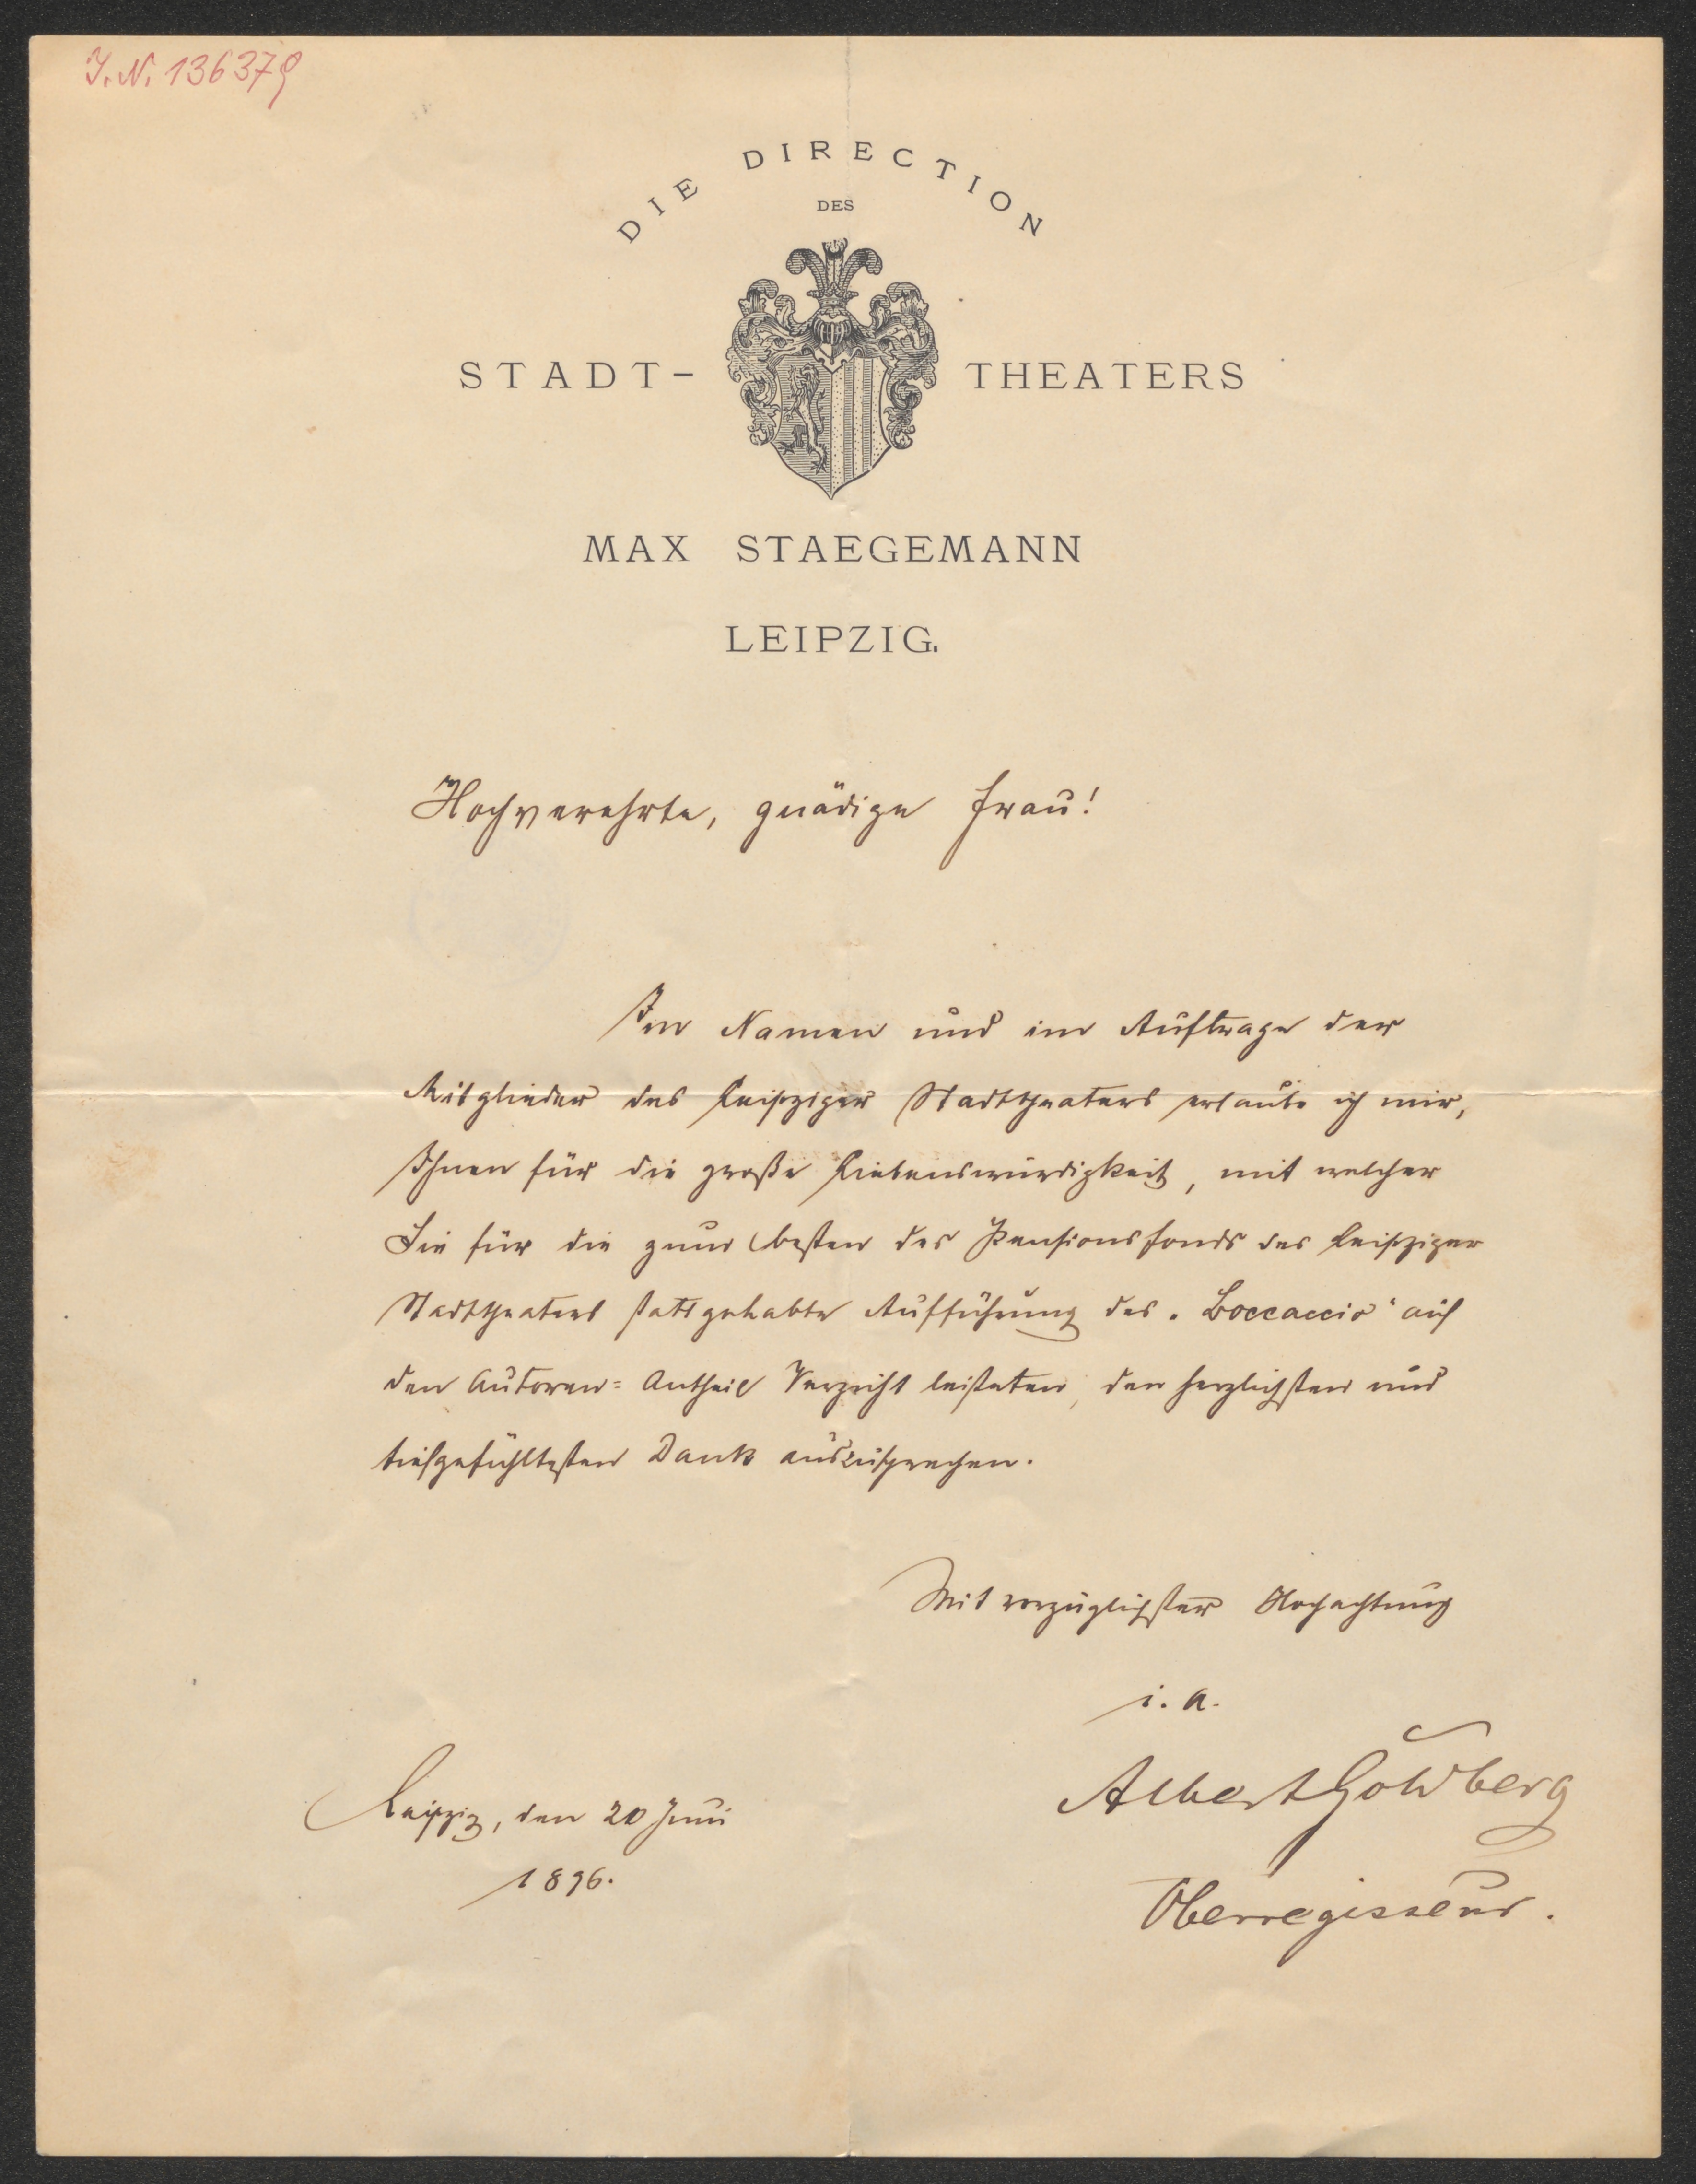 J. N. 136379
DIE DIRECTION
DES
STADT- THEATERS
MAX STAEGEMANN
LEIPZIG.
Hochverehrte, gnädige Frau!
Im Namen und im Auftrage der
Mitglieder des Leipziger Stadttheaters erlaube ich mir,
Ihnen für die große Liebenswürdigkeit, mit welcher
Sie für die zum besten des Pensionsfonds des Leipziger
Stadttheaters stattgehabte Aufführung des „Boccaccio“ auf
den Autoren= Antheil Verzicht leisteten, den herzlichsten und
tiefgefühltesten Dank auszusprechen.
Mit vorzüglichster Hochachtung
i. A.
Albert Goldberg
Oberregisseur.
Leipzig, den 20 Juni
1896.